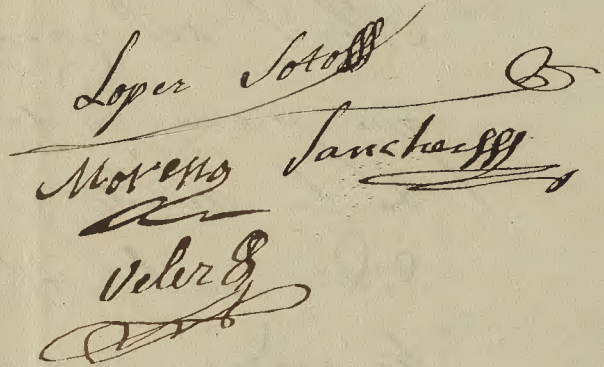 Loper Soto
Moreno Sanchez
Veler